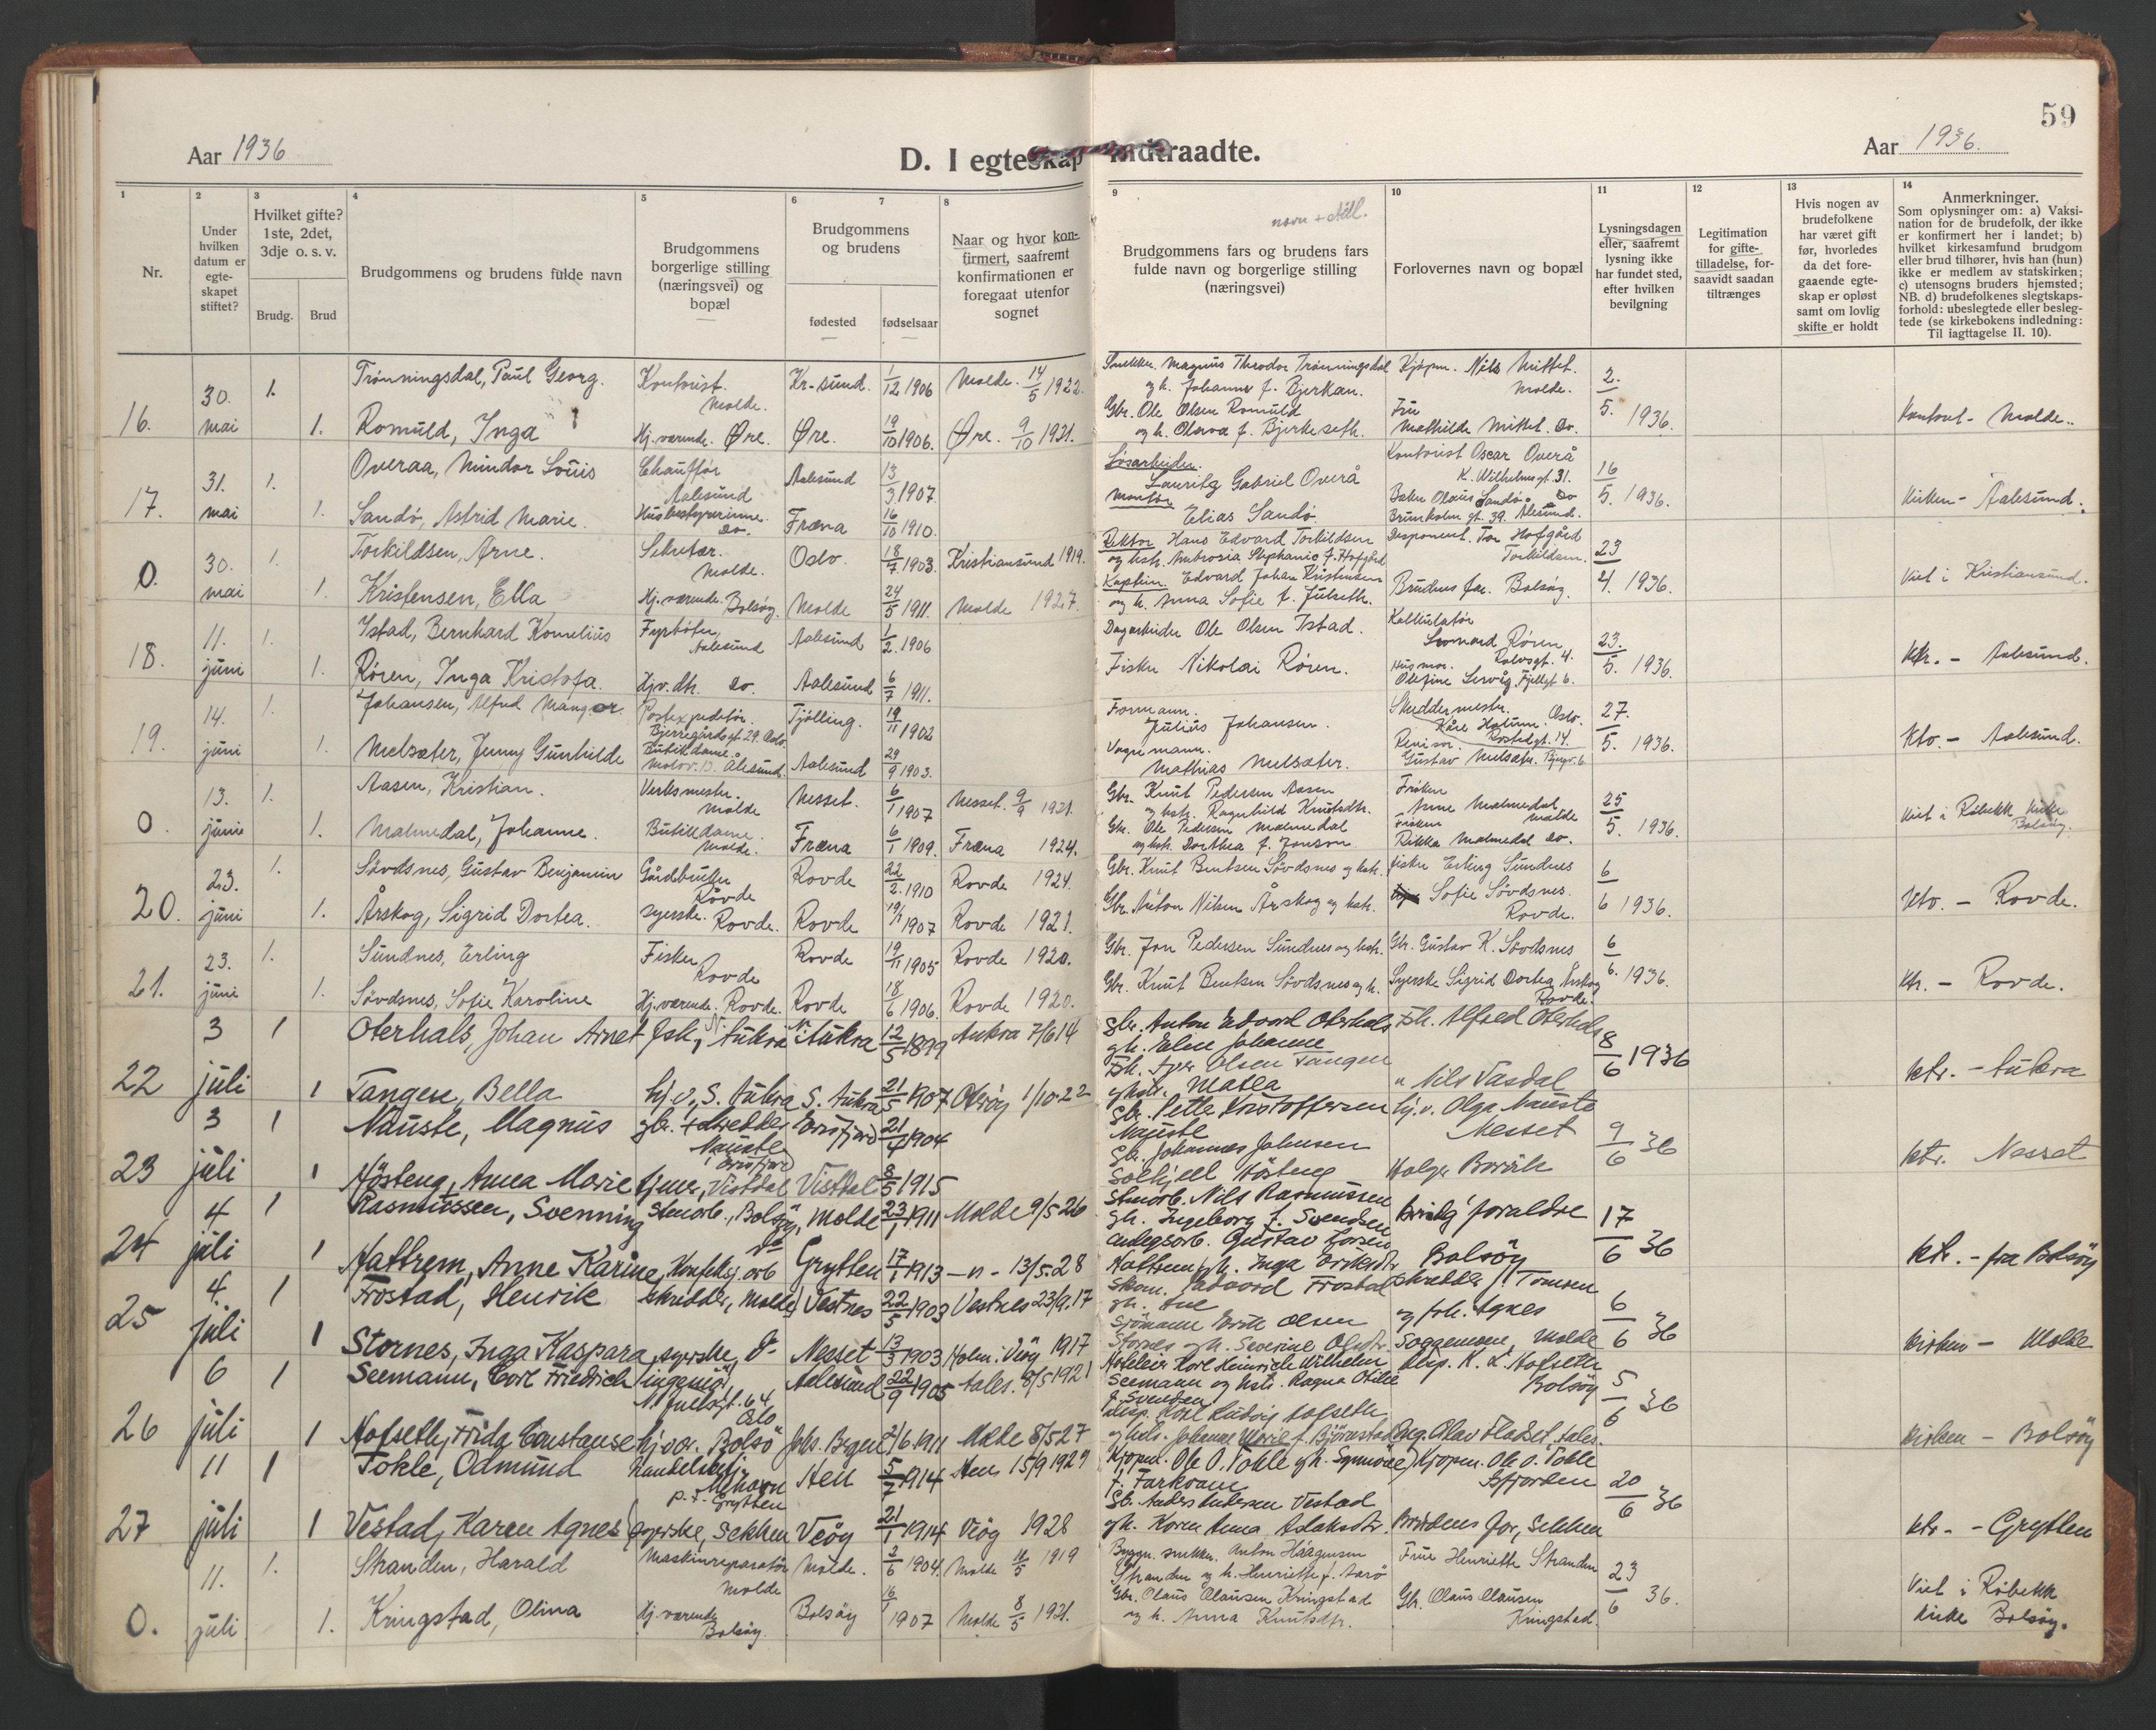 59
Aar 1936
D. I egteskap indtraadte.
Aar 1936.
1 2 3 4 5 6 7 8 9 10 11 12 13 14
Nr.
Under hvilken datum er egte-skapet stiftet?
Hvilket gifte? 1ste, 2det, 3dje o. s. v.
Brudg. Brud
Brudgommens og brudens fulde navn
Brudgommens borgerlige stilling (næringsvei) og bopæl
Brudgommens og brudens
fødested fødselsaar
Naar og hvor kon-firmert, saafremt konfirmationen er foregaat utenfor sognet
navn + still.
Brudgommens fars og brudens fars fulde navn og borgerlige stilling (næringsvei)
Forlovernes navn og bopæl
Lysningsdagen eller, saafremt lysning ikke har fundet sted, efter hvilken bevilgning
Legitimation for gifte-tilladelse, for-saavidt saadan tiltrænges
Hvis nogen av brudefolkene har været gift før, hvorledes da det fore-gaaende egte-skap er opløst samt om lovlig skifte er holdt
Anmerkninger. Som oplysninger om: a) Vaksi-nation for de brudefolk, der ikke er konfirmert her i landet; b) hvilket kirkesamfund brudgom eller brud tilhører, hvis han (hun) ikke er medlem av statskirken; c) utensogns bruders hjemsted; NB. d) brudefolkenes slegtskaps-forhold: ubeslegtede eller besleg-tede (se kirkebokens indledning: Til iagttagelse II. 10).
16. 30. mai 1. Trønningsdal, Paul Georg. Kontorist. Molde. Kr-sund. 1/12 1906 Molde. 14/5 1922. Snekker. Magnus Theodor Trønningsdal og h. Johanne f. Bjerkan. Kjøpm. Nils Mittet. Molde. 2./5. 1936.
1. Romuld, Inga Hj. værende. Øre. Øre. 19/10 1906. Øre. 9/10 1921. Gbr. Ole Olsen Romuld og h. Olava f. Bjerkeseth. Fru Mathilde Mittet. Do. Kontoret - Molde.
17. 31. mai 1. Overaa, Mindor Louis Chauffør Aalesund Aalesund 13/3 1907. Løsarbeider. Lauritz Gabriel Overå Kontorist Oscar Overå K. Wilhelmsgt. 31. 16/5. 1936.
1. Sandø, Astrid Marie. Husbestyrerinne. Do. Fræna 16/10 1910. Montør Elias Sandø Baker Olaus Sandø Do Brunholm gt. 39. Ålesund. Kirken - Aalesund.
0. 30. mai 1. Torkildsen, Arne. Sekretær. Molde. Oslo. 18/7. 1903. Kristiansund 1919. Rektor Hans Edvard Torkildsen og hst. Ambrosia Stephanie f. Hofgård Disponent. Tor Hofgård Torkildsen. 23/4. 1936.
1. Kristensen, Ella Hj. værende. Bolsøy. Molde 24/5 1911. Molde 1927. Kaptein. Edvard Johan Kristensen og h. Anna Sofie f. Julseth. Brudens far. Bolsøy. Viet i Kristiansund.
18. 11. juni 1. Istad, Bernhard Kornelius Fyrbøter, Aalesund Aalesund 1/2. 1906 Dagarbeider Ole Olsen Istad. Kalkulatør Leonard Røren Rolvsgt. 4. 23./5. 1936.
1. Røren, Inga Kristofa. Hjv. dtr. Do. Aalesund 6/7 1911. Fisker Nikolai Røren. Husmor. Olefine Lervåg, Fjellgt 6. Ktr. - Aalesund.
19. 14. juni 1. Johansen, Alfred Mangor. Postexpeditør. Bjerregårdsgt 29. Oslo. Tjølling. 19/11 1902 Formann. Julius Johansen. Skreddermestr. Kåre Hatum. Oslo. 27./5. 1936.
1. Melsæter, Jenny Gunhilde Butikdame. Ålesund. Aalesund 29/9 1903. Vognmann. Mathias Melsæter. Revisor. Gustav Melsæter. Kto. - Aalesund.
0. 13. juni 1. Aasen, Kristian. Verksmester. Molde Nesset. 6/1 1907 Nesset. 9/9 1921. Gbr. Knut Pedersen Aasen og hst. Ragnhild Knutsdtr. Frøken Anne Malmedal Molde 25/5. 1936.
1. Malmedal, Johanne. Butikdame. Molde. Fræna 6/1 1909. Fræna 1924. Gbr. Ole Pedersen Malmedal og hst. Dorthea f. Jonson Frøken Rikka Malmedal Do. Viet i Røbekk kirke Bolsøy.
20. 23. juni 1. Søvdsnes, Gustav Benjamin Gårdbruker Rovde Rovde 22/2. 1910 Rovde 1924. Gbr. Knut Bentsen Søvdsnes og hst. Fisker Erling Sundnes 6/6 1936.
1. Årskog, Sigrid Dortea. Syerske. Rovde. Rovde 19/1 1907 Rovde 1921. Gbr. Anton Nilsen Årskog og hst. Sofie Søvdsnes. Rovde. Kto. - Rovde.
21. 23. juni 1. Sundnes, Erling Fisker, Rovde Rovde 19/11 1905 Rovde 1920. Gbr. Jon Pedersen Sundnes og hst. Gbr. Gustav K. Søvdsnes 6/6. 1936.
1. Søvdsnes, Sofie Karoline Hj. værende. Rovde. Rovde 18/6 1906. Rovde 1920. Gbr. Knut Bentsen Søvdsnes og h. Syerske Sigrid Dortea Årskog Rovde. Ktr. - Rovde.
22 3 juli 1 Oterhals, Johan Arnet fsk., N. Aukra N. Aukra 12/5 1899 Aukra 7/6 14 gbr. Anton Edvard Oterhals gh. Eline Johanne Fsk. Alfred Oterhals 8/6 1936
1 Tangen, Bella hj. v., S. Aukra S. Aukra 21/5 1907 Otrøy 1/10-22 Fsk. Iver Olsen Tangen g hst. Matea " Nils Vasdal ktr. - Aukra
23 3 juli 1 Nauste, Magnus gbr. + skredder Nauste, Eresfjord Eresfjord 21/4 1904 Gbr. Petter Kristoffersen Nauste hj. v. Olga Nauste Nesset 9/6 36
1 Høsteng, Anna Marie hjmv., Vistdal Vistdal 8/5 1915 Gbr. Johannes Johnsen Solhjell Høsteng Holger Bersås ktr. Nesset
24 4 juli 1 Rasmussen, Svenning Stenarb., Bolsøy, Molde 23/7 1911 Molde 9/5 26 Stenarb. Nils Rasmussen gh. Ingeborg f. Svendsen Brudg. foreldre 17/6 36
1 Mattrem, Anne Karine, Konfeksj. arb do Grytten 17/1 1913 - " - 13/5.28 anlegsarb. Gustav Larsen Mattrem gh. Inga Eriksdtr Bolsøy ktr. - fra Bolsøy
25 4. juli 1 Frostad, Henrik Skredder, Molde Vestnes 22/5 1903 Vestnes 23/9.17 Skom. Edvard Frostad gh. Ane Skredder J. Tomren og frk. Agnes 6/6 36
1 Stornes, Inga Kaspara, syerske, do Nesset 13/3 1903 Holm i Veøy 1917 Sjømann Erik Olsen Stornes gh. Severine Olsdtr. Soggemoen, Molde kirken - Molde
26 6 juli 1 Seemann, Carl Friedrich ingeniør, N. Juelsgt. 64 Oslo Aalesund 22/9 1905 Aales. 8/5 1921 Hoteleier Karl Heinrich Wilhelm Seemann og hstr. Ragna Otilie f. Svendsen disp. K. L. Hofseth Bolsøy 5/6 36
1 Hofseth, Frida Constanse hj. vær. Bolsø Johs. Bergen 21/6.1911 Molde 8/5 27 disp. Karl Ludvig Hofseth og hstr. Johanne Marie f. Bjørnstad Olav Fladset, Aales. kirken - Bolsøy
27 11 juli 1 Tokle, Odmund handelsbetj. Mehavn p. t. Grytten Hen 5/7 1914 Hen 15/9 1929 Kjøpm. Ole O. Tokle gh. Synnøve f. Farkvam Kjøpm. Ole O. Tokle Isfjorden 20/6 36
1 Vestad, Karen Agnes syerske, Sekken Veøy 21/1 1914 Veøy 1928 Gb. Anders Andersen Vestad gh. Karen Anna Aslaksdtr. Brudens far, Sekken ktr. - Grytten
0. 11. juli 1. Stranden, Harald Maskinreparatør Molde Molde. 2/6 1904. Molde 11/5 1919 Byggn. snekker. Anton Haagensen Stranden og h. Henriette f. Aarø Frue Henriette Stranden 23/6 36.
1. Kringstad, Olina Hj. værende Bolsøy. Bolsøy 16/1 1907 Molde 8/5 1921. Gbr. Olaus Olausen Kringstad og h. Anna Knutsdtr. Gbr. Olaus Olausen Kringstad. Viet i Røbekk kirke Bolsøy.